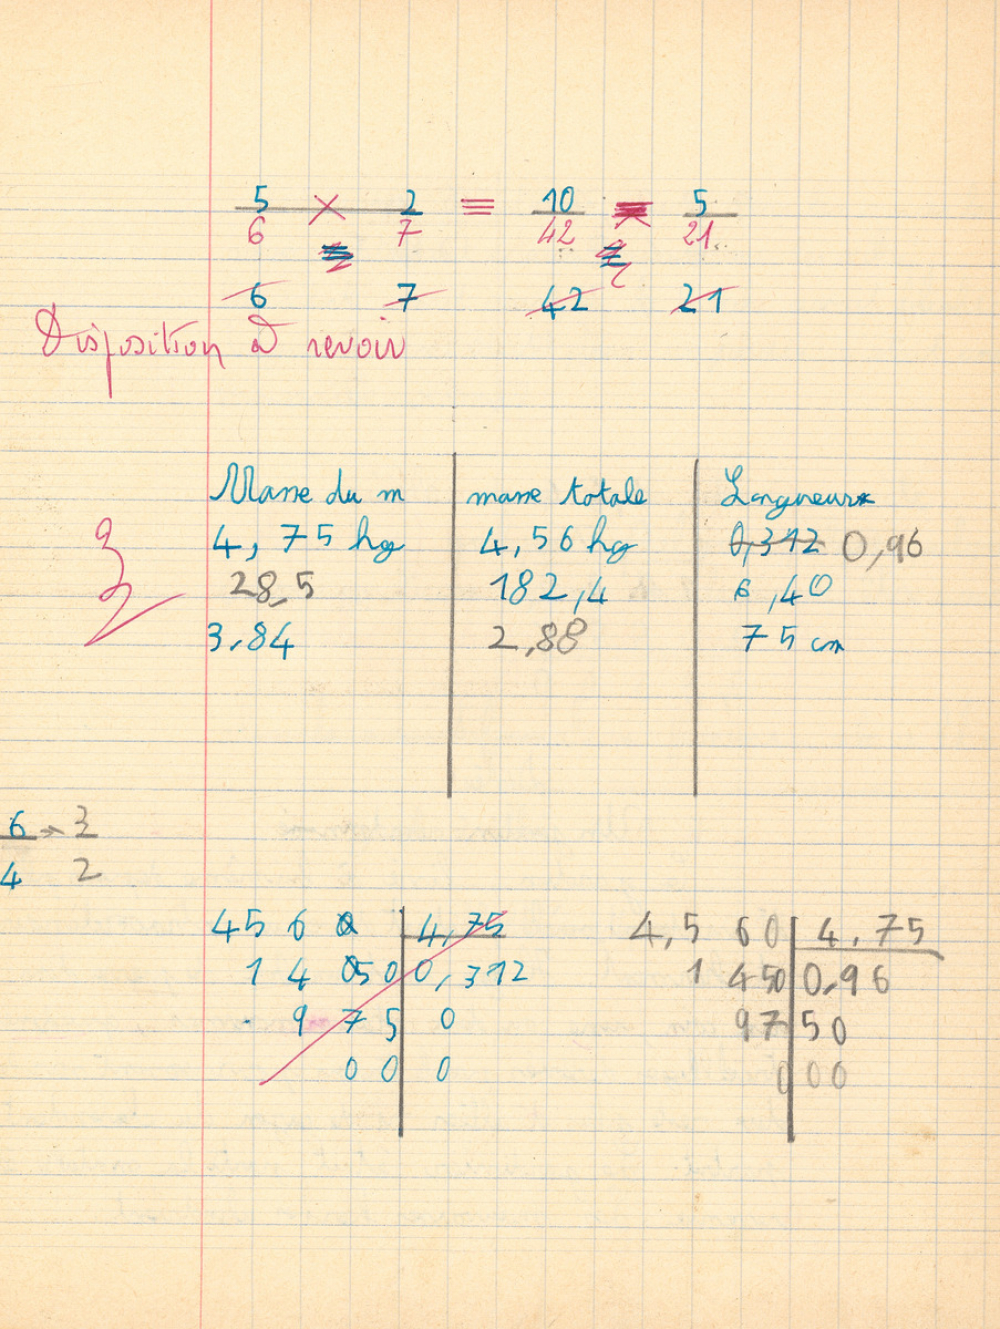 5 × 2 = 10 = 5
6 7 42 21
6 7 42 21
Disposition à revoir
Masse du m masse totale Longueurs
4,75 hg 4,56 hg 0,312 0,96
28,5 182,4 6,40
3,84 2,88 75 cm
6 → 3
4 2
456 0 4,75
1 4 050 0,312
9 7 5 0
0 0 0
4,5 60 4,75
1 450 0,96
97 50
0 00